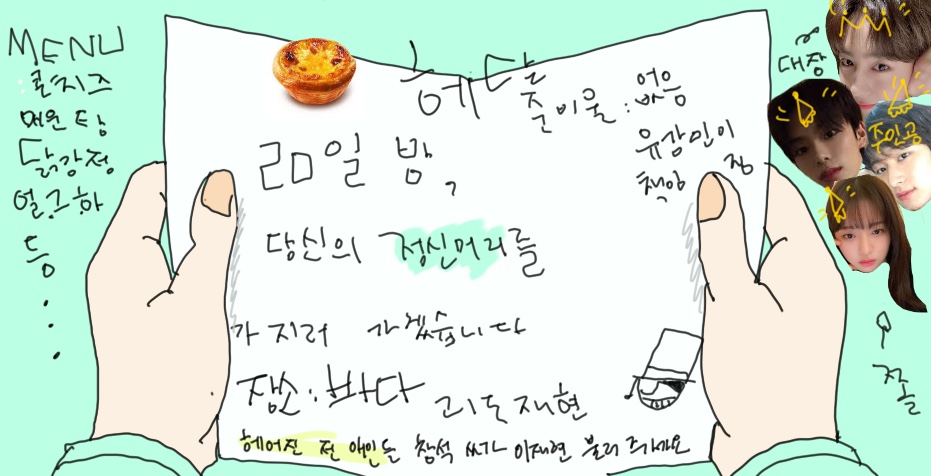 MENU
콜치즈
매운탕
닭강정
얼그하
등
혜다늘
준이물 : 없음
20일 밤,
유강민이
책임 짐
당신의 정신머리를
가지러 가겠습니다
장소 : 바다
괴도 재현
헤어진 전 애인들 참석
이재현 불러
대장
주인공
졸